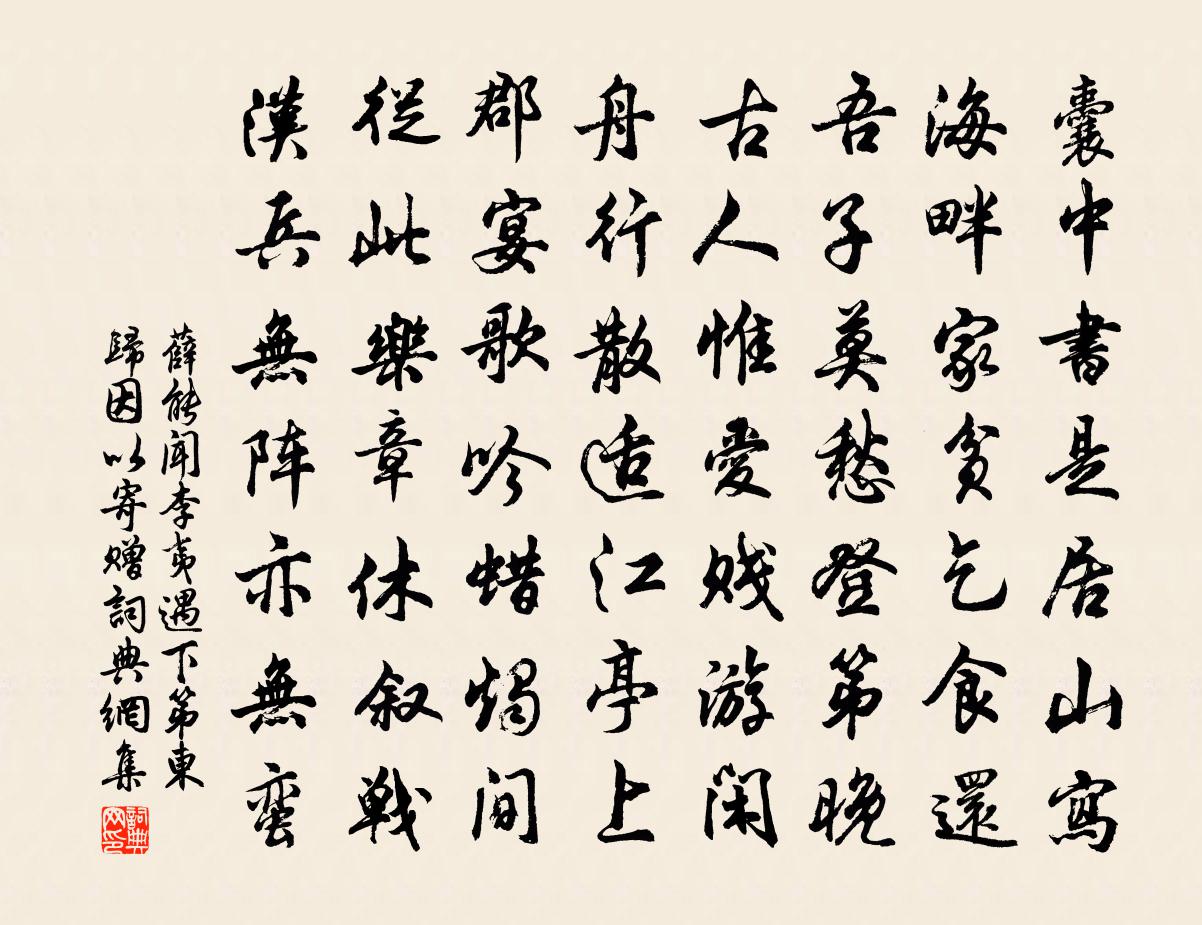 囊中書是居山寫
海畔家貧乞食還
吾子莫愁登第晚
古人惟愛賤游閑
舟行散适江亭上
郡宴歌吟蜡燭間
從此樂章休叙戰
漢兵無陣亦無蠻
薛能聞李夷遇下第東
歸因以寄贈詞典網集
詞典网印